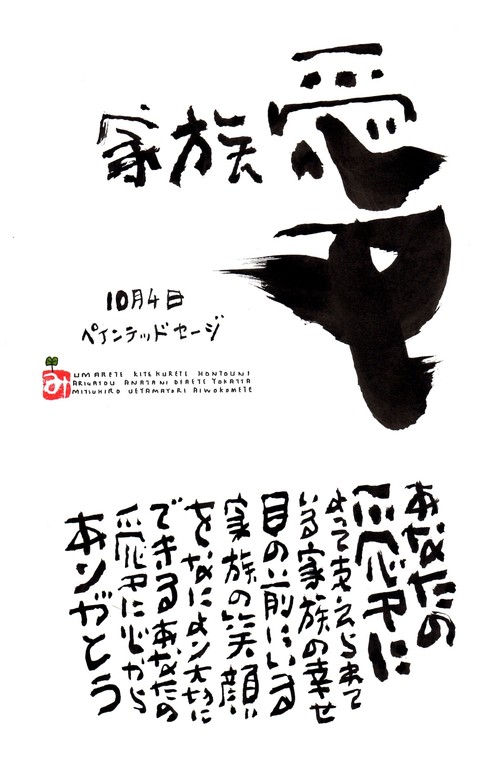 家族愛
10月4日
ペインテッドセージ
み
UMARETE KITEKURETE HONTOUNI
ARIGATOU ANATANI DEAETE YOKATTA
MITSUHIRO UEYAMAYORI AIWOKOMETE
あなたの
愛に
よって支えられて
いる家族の幸せ
目の前にいる
家族の笑顔
をなにより大切に
できるあなたの
愛に心から
ありがとう